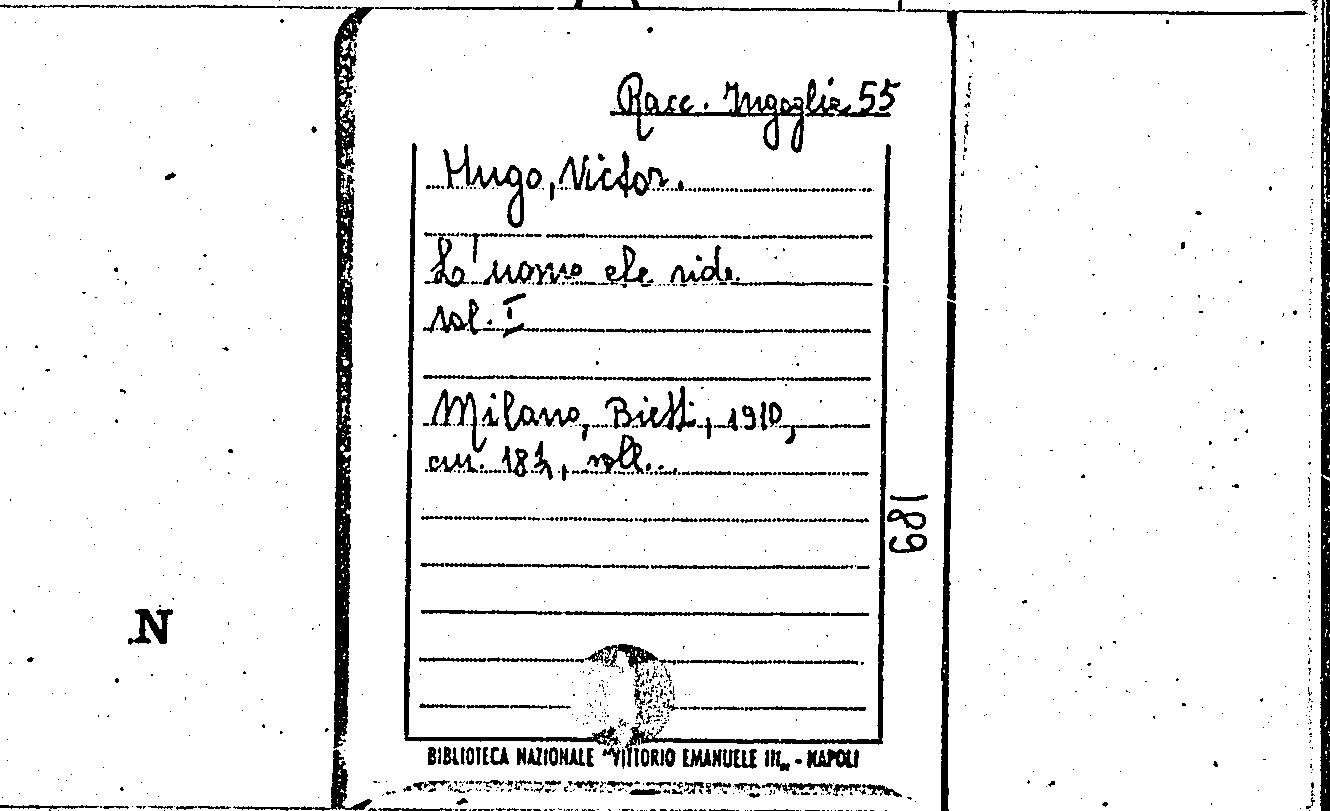 Racc. Ingoglia 55
Hugo, Victor.
L'uomo che ride
vol. I
Milano, Bietti, 1910,
cm. 18½, voll...
189
N
BIBLIOTECA NAZIONALE "VITTORIO EMANUELE III„ - NAPOLI